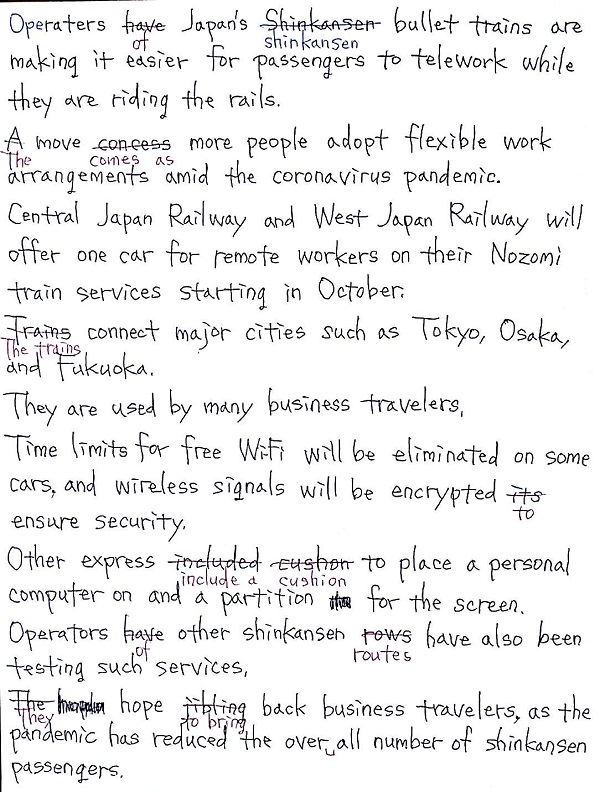 Operaters have Japan's Shinkansen bullet trains are
of shinkansen
making it easier for passengers to telework while
they are riding the rails.
A move concess more people adopt flexible work
The comes as
arrangements amid the coronavirus pandemic.
Central Japan Railway and West Japan Railway will
offer one car for remote workers on their Nozomi
train services starting in October.
Trains connect major cities such as Tokyo, Osaka,
The trains
and Fukuoka.
They are used by many business travelers,
Time limits for free WiFi will be eliminated on some
cars, and wireless signals will be encrypted its
to
ensure security.
Other express included cushon to place a personal
include a cushion
computer on and a partition for the screen.
Operators have other shinkansen rows have also been
of routes
testing such services,
The hope jibting back business travelers, as the
They to bring
pandemic has reduced the over all number of shinkansen
passengers.